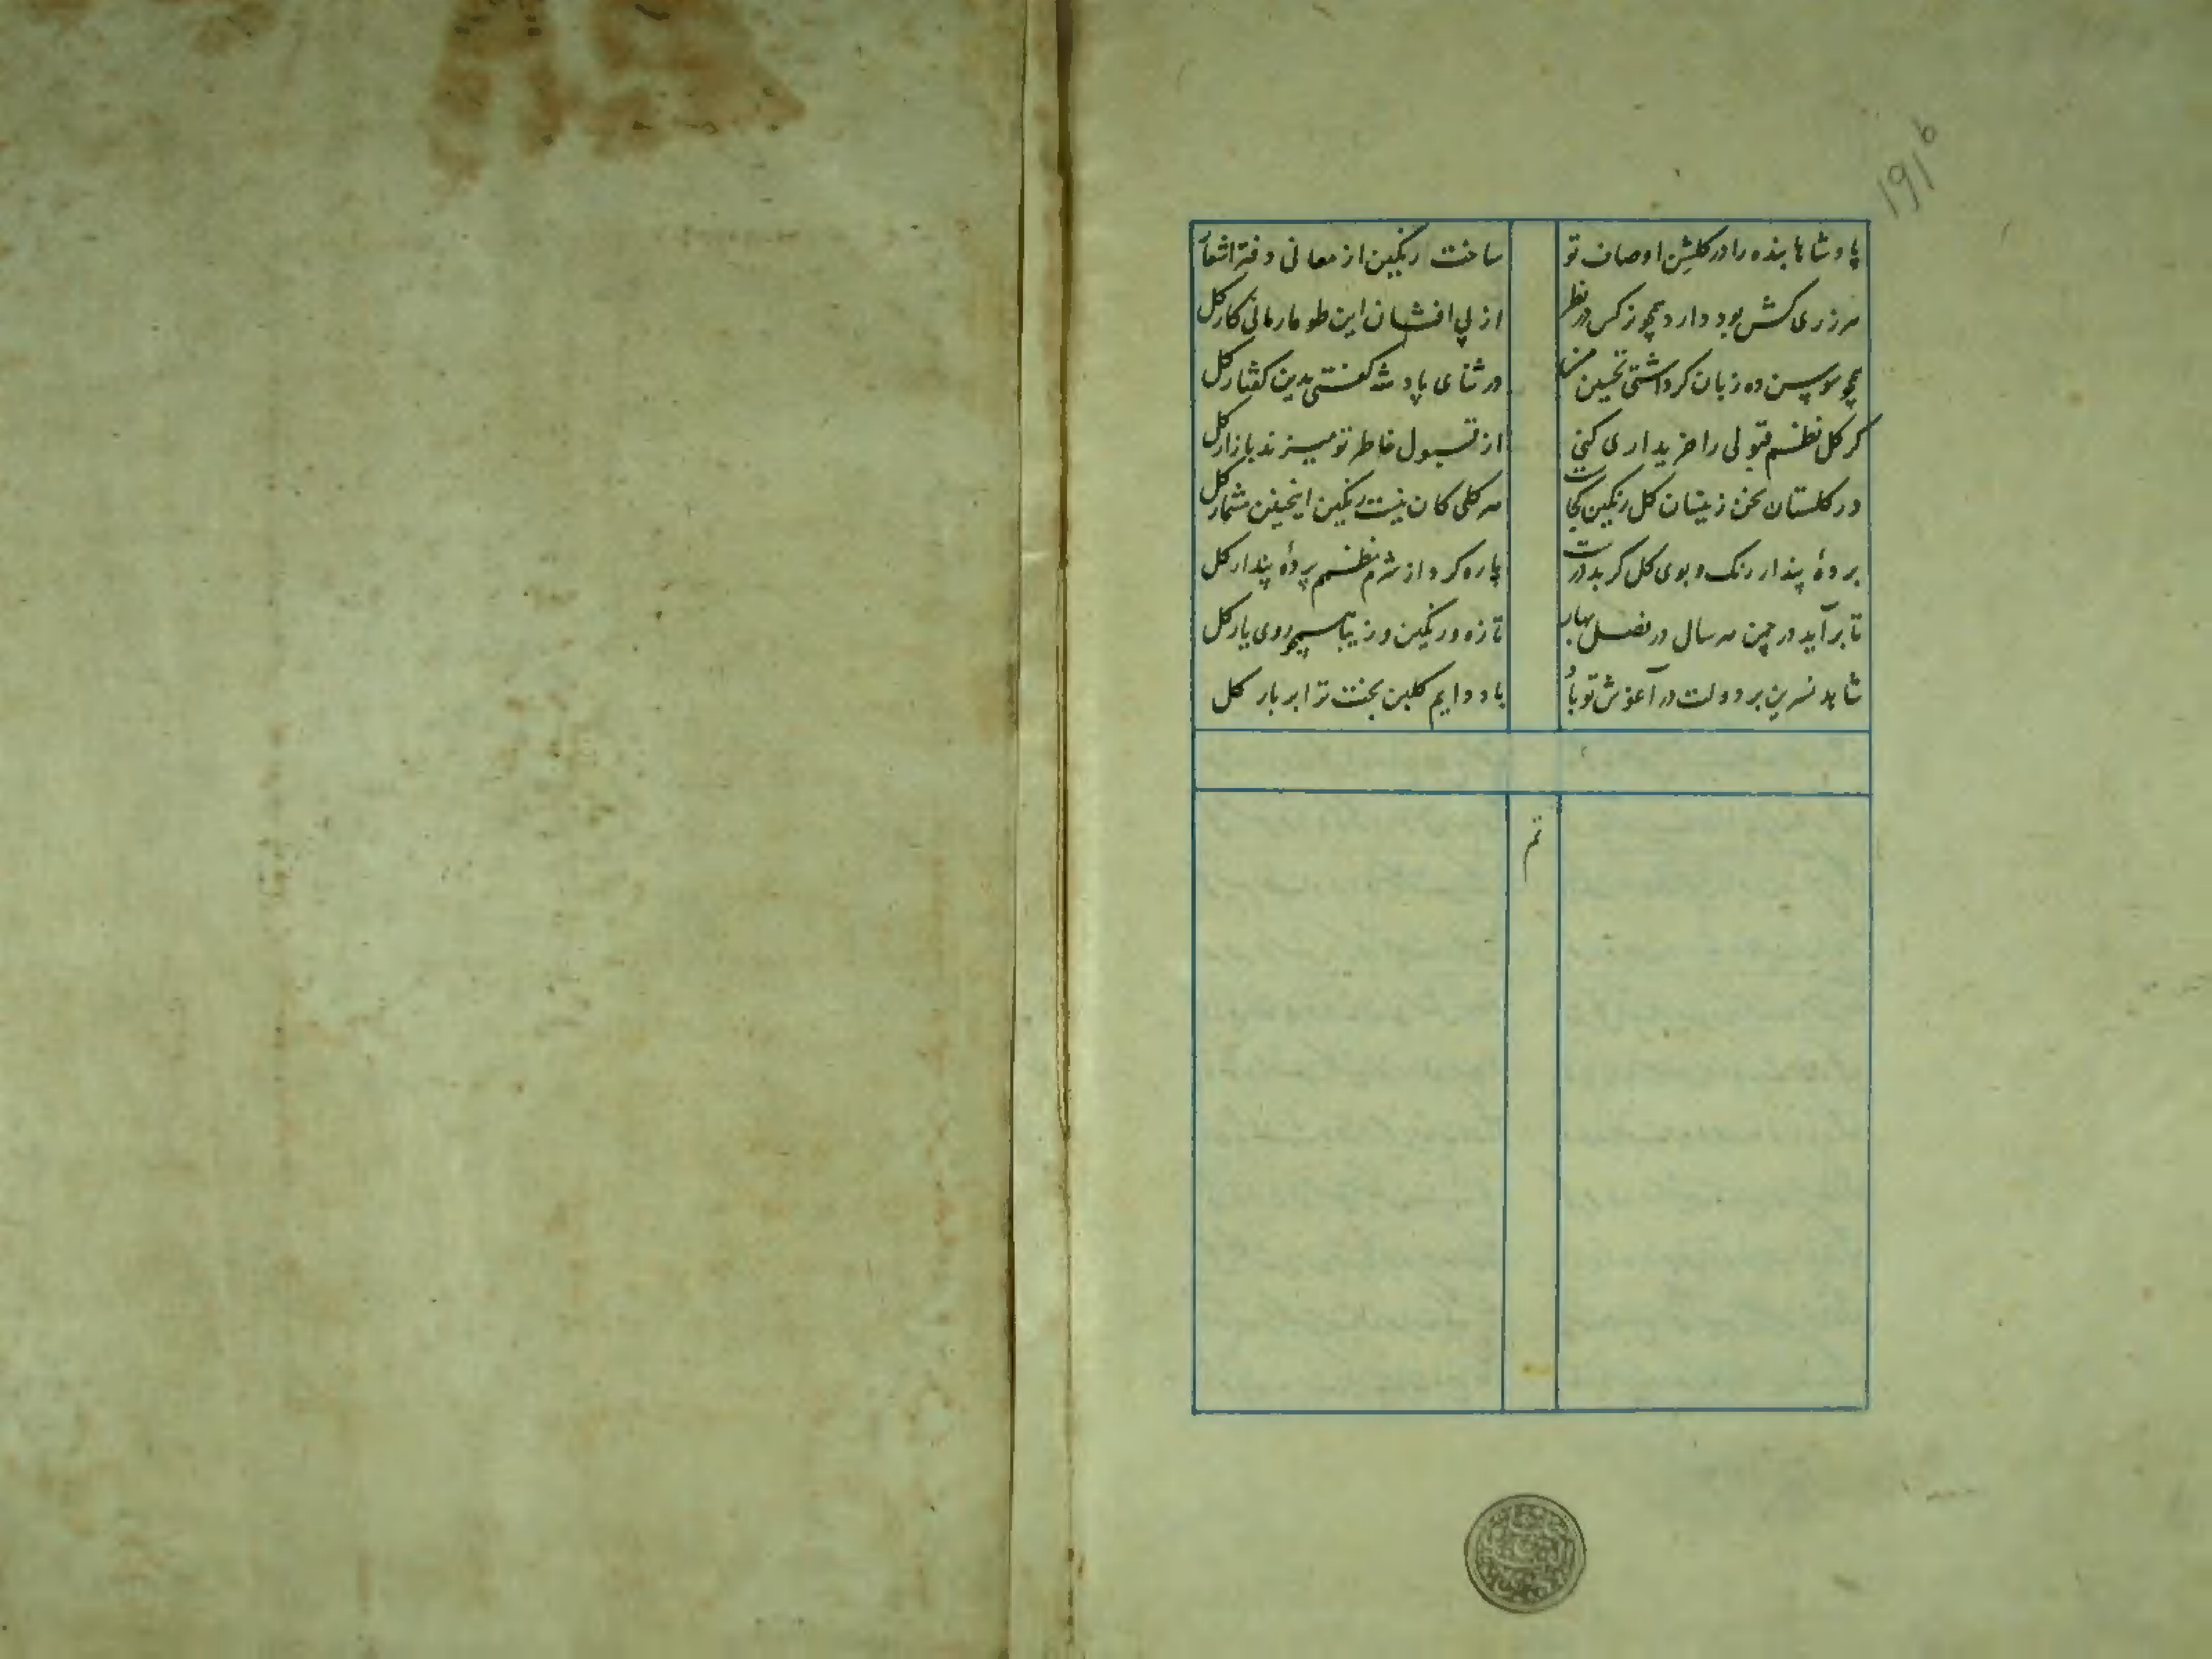 191b
پادشاها بنده را در کلشن اوصاف تو ساخت رنکین از معانی دفتر اشعار
هر زری کش بود دارد همچو نرکس در نظر از پی افشان این طومار مانی کار کل
همچو سوسن ده زبان کر داشتی تحسین در ثنای پادشه کفتی بدین کفتار کل
کر کل نظم قبولی را خریداری کنی از قبول خاطر تو میزند بازار کل
در کلستان سخن زینسان کل رنکین کجاست هر کلی کان نیست رنکین اینچنین مشمار کل
پردهٔ پندار رنک و بوی کل کر بد درست پاره کرد از شرم نظمم پردهٔ پندار کل
تا برآید در چمن هر سال در فصل بهار تازه و رنکین و زیبا همچو روی یار کل
شاهد نسرین بر دولت در آغوش تو باد باد دایم کلبن بخت ترا بر بار کل
تم